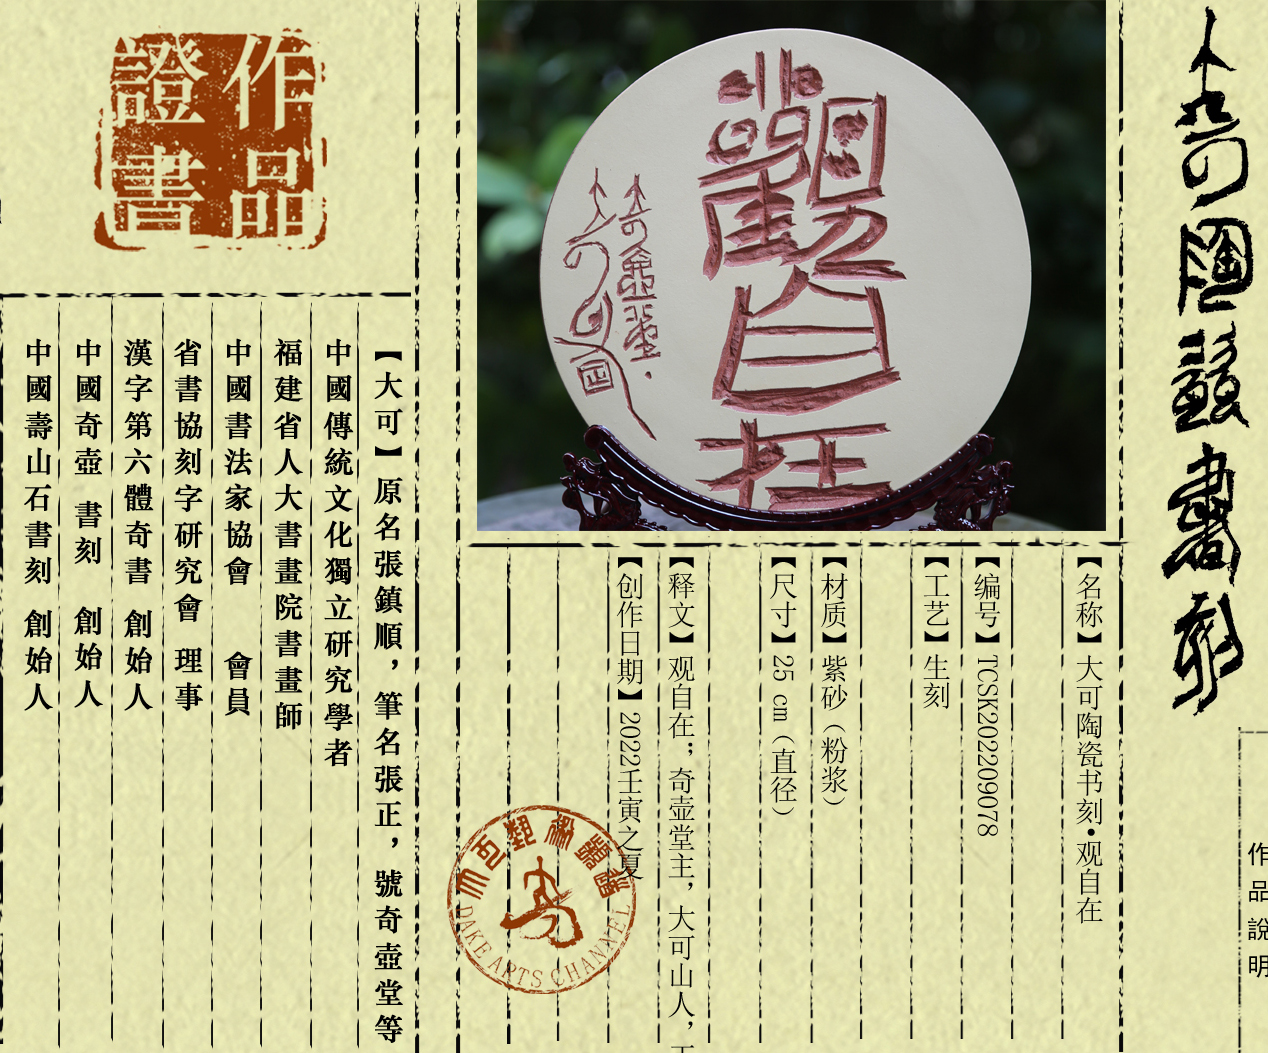 大可陶瓷書刻
作品說明
【名称】大可陶瓷书刻•观自在
【编号】TCSK202209078
【工艺】生刻
【材质】紫砂（粉浆）
【尺寸】25 cm（直径）
【释文】观自在；奇壶堂主，大可山人，
【创作日期】2022壬寅之夏
觀自在
大可藝術頻道
DAKE ARTS CHANNEL
作品證書
【大可】原名張鎮順，筆名張正，號奇壺堂等
中國傳統文化獨立研究學者
福建省人大書畫院書畫師
中國書法家協會 會員
省書協刻字研究會 理事
漢字第六體奇書 創始人
中國奇壺 書刻 創始人
中國壽山石書刻 創始人